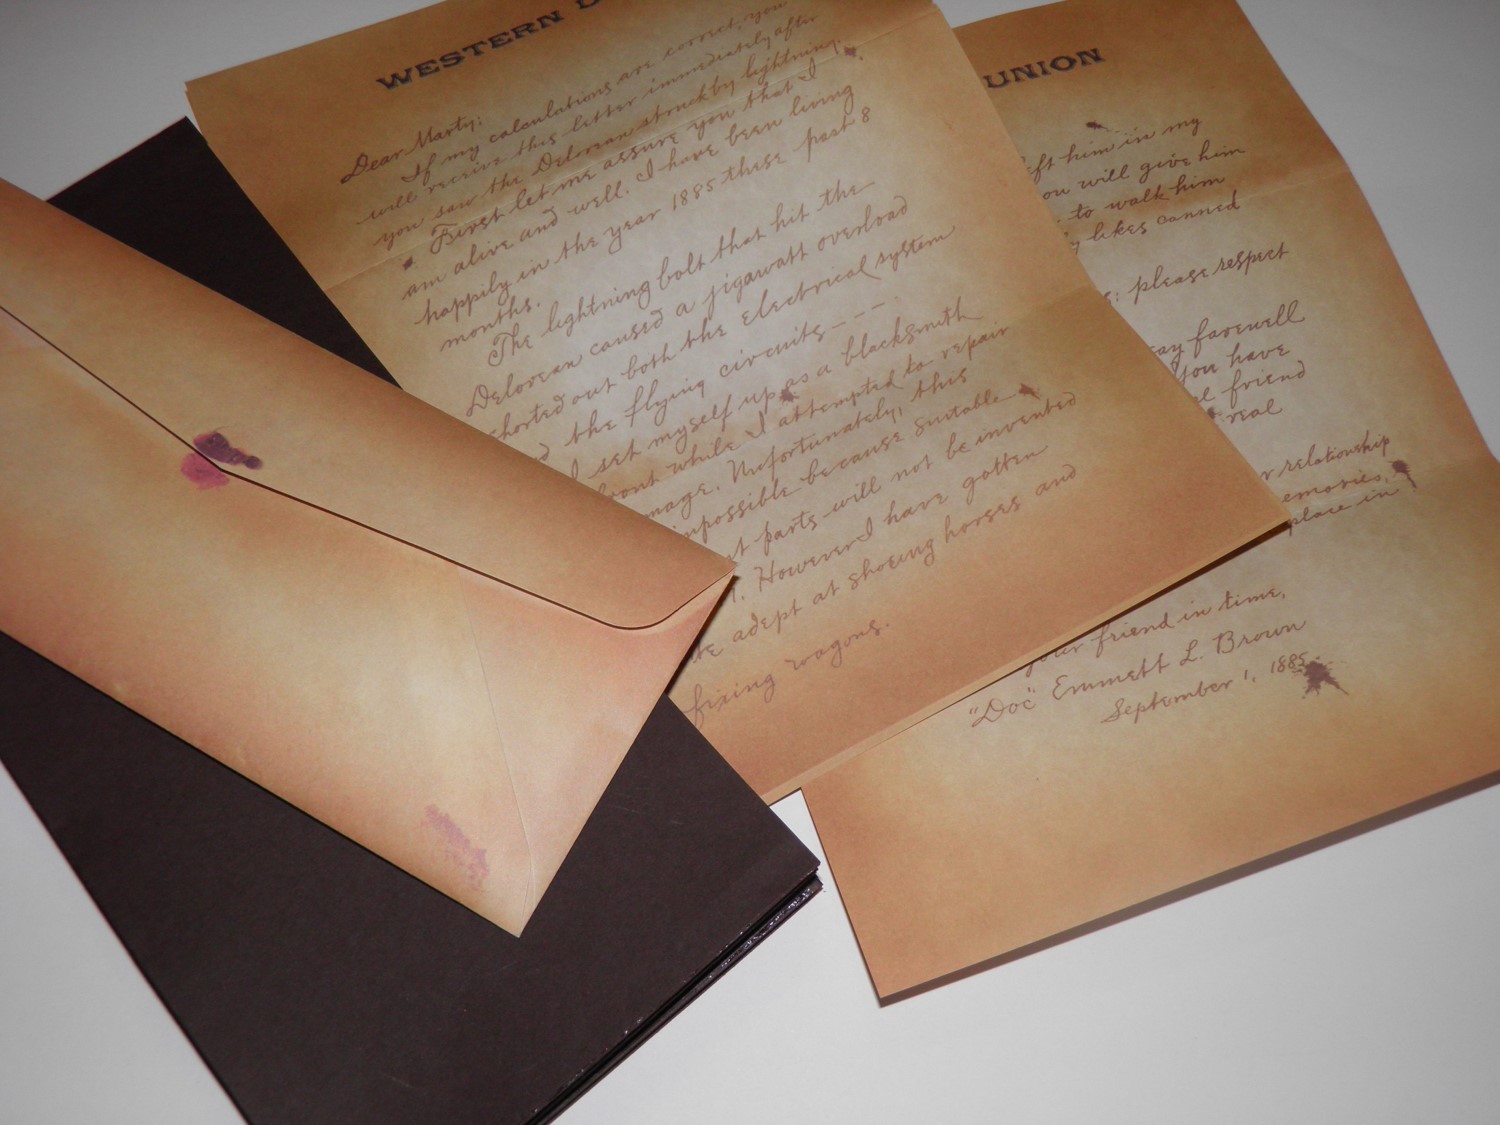 WESTERN
Dear Marty;
If my calculations are correct, you
will receive this letter immediately after
you saw the Delorean struck by lightning.
First let me assure you that I
am alive and well. I have been living
happily in the year 1885 these past 8
months.
The lightning bolt that hit the
Delorean caused a jigawatt overload
shorted out both the electrical system
the flying circuits - - -
I set myself up as a blacksmith
front while I attempted to repair
Unfortunately, this
impossible because suitable
parts will not be invented
However I have gotten
adept at shoeing horses and
fixing wagons.
UNION
left him in my
you will give him
to walk him
likes canned
: please respect
say farewell
you have
friend
real
relationship
place in
your friend in time,
"Doc" Emmett L. Brown
September 1, 1885